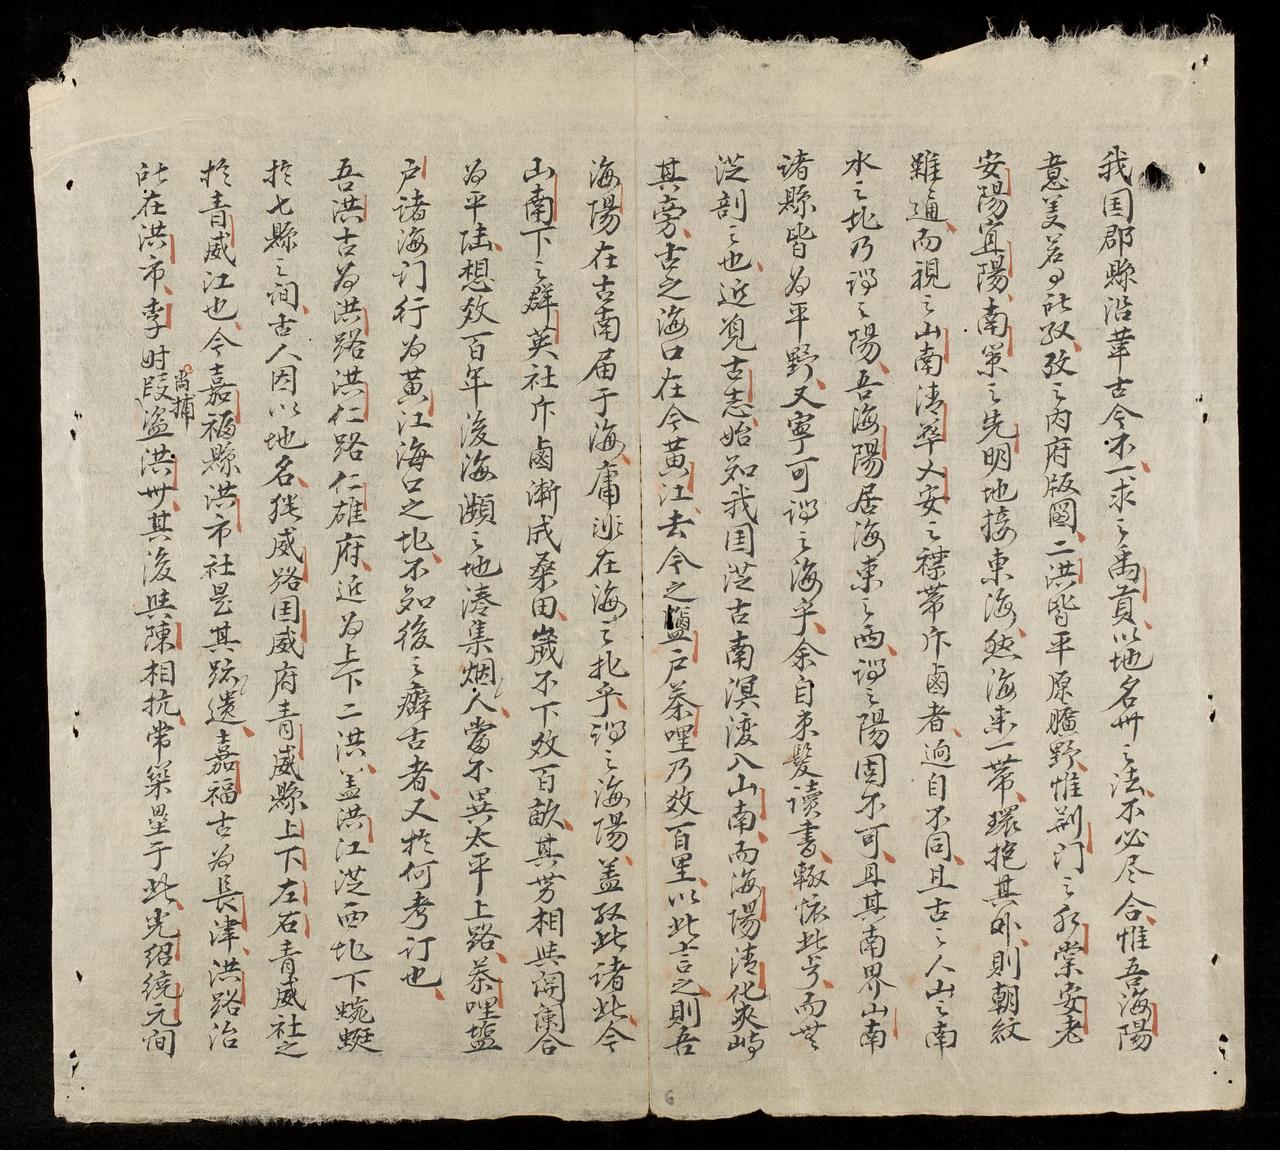 我国郡縣沿革古今不一求之禹貢以地名州之法不必尽合惟吾海陽
意美若有所取攷之內府版圖二洪皆平原曠野惟荊門之永棠安老
安陽宜陽南策之先明地接東海然海東一帶環抱其外則朝紋
雖通而視之山南清華又安之襟帶斥鹵者逈自不同且古之人山之南
水之北乃謂之陽吾海陽居海東之西謂之陽固不可且其南界山南
諸縣皆為平野又寧可謂之海乎余自束髮讀書輙怀此疑而無
從剖之也近覓古志始知我国從古南溟渡入山南而海陽清化夾峙
其旁古之海口在今黃江去今之鹽戶茶哩乃数百里以此言之則吾
海陽在古南届于海庸非在海之北乎謂之海陽蓋取此諸此今
山南下之群英社斥鹵漸成桑田歲不下数百畝其勞相與開闢合
為平陸想数百年後海瀕之地湊集烟人當不異太平上路茶哩塩
戶諸海门行為黃江海口之地不知後之癖古者又於何考订也
吾洪古為洪路洪仁路仁雄府近為上下二洪盖洪江從西北下蜿蜒
於七縣之间古人因以地名猶威路国威府青威縣上下左右青威社之
於青威江也今嘉福縣洪市社是其跡遺嘉福古為長津洪路治
所在洪市李时段尚捕盜洪州其後與陳相抗常築壘于此光紹統元间